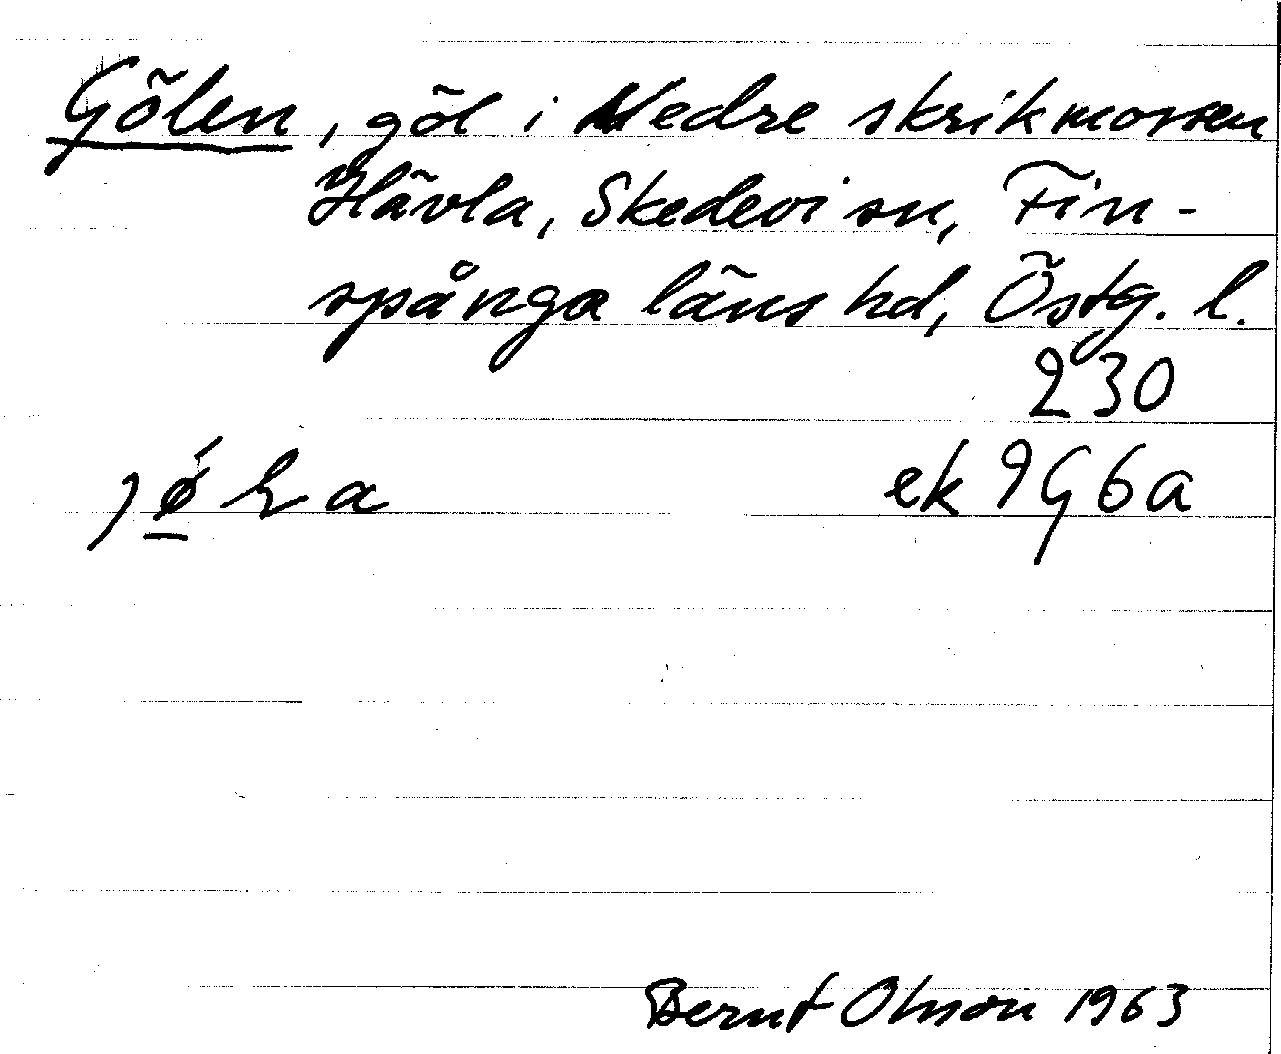 Gölen, göl i Nedre skrikmossen
Hävla, Skedevi sn, Fin-
spånga läns hd, Östg. l.
230
ek 9G6a
Bernt Olsson 1963